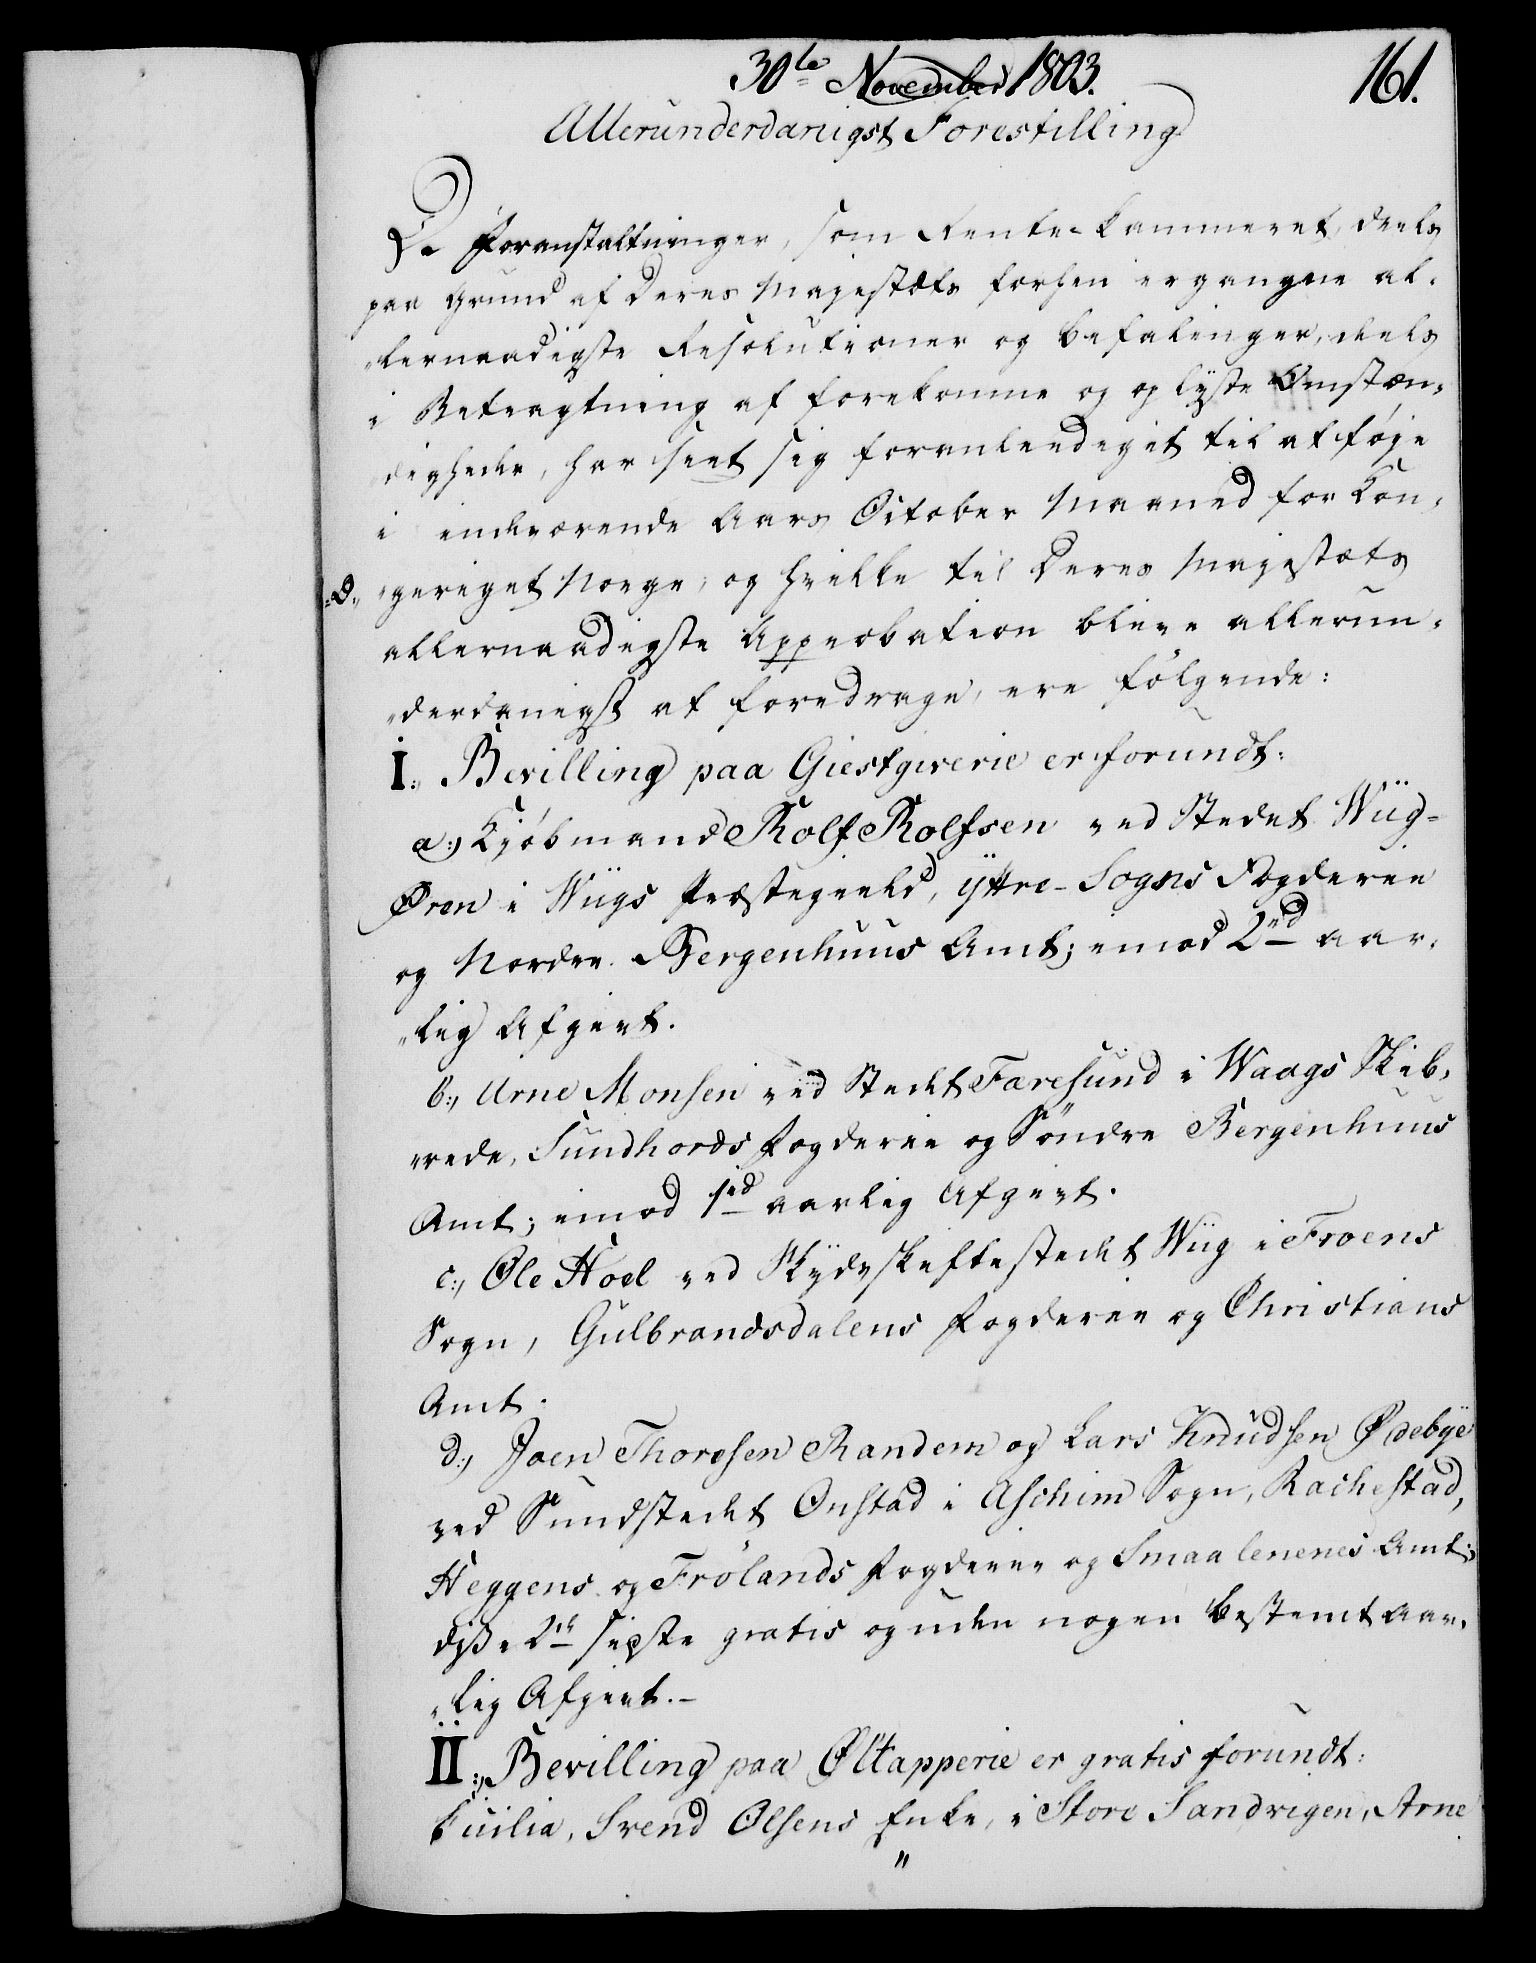 30te November 1803.
161.
Allerunderdanigst Forestilling
De Foranstaltninger, som Rente-Kammeret, deels
paa Grund af Deres Majestæts forhen ergangne al-
„lernaadigste Resolutioner og Befalinger, deels
i Betragtning af forekomne og oplyste Omstæn-
digheder, har seet sig foranlediget til at føje
i indeværende Aars October Maaned for Kon-
„geriget Norge, og hvilke til Deres Majestæts
allernaadigste Approbation blive allerun-
„derdanigst at foredrage, ere følgende:
I:, Bevilling paa Giestgiverie er forundt:
a:, Kjøbmand Rolf Rolfsen ved Stedet Wiig-
Øren i Wiigs Præstegield, Yttre-Sogns Fogderie
og Nordre Bergenhuus Amt; imod 2rd aar-
„lig Afgivt.
b:, Arne Monsen ved Stedet Faresund i Waags Skib-
„rede, Sundhords Fogderie og Söndre Bergenhuus
Amt; imod 1rd aarlig Afgivt.
c:, Ole Hoel ved Skydsskiftestedet Wiig i Froens
Sogn, Gulbrandsdalens Fogderie og Christians
Amt.
d:, Joen Thoresen Randem og Lars Knudsen Ødebye
ved Sundstedet Onstad i Aschim Sogn, Rachestad,
Heggens og Frölands Fogderie og Smaalenenes Amt;
disse 2de sidste gratis og uden nogen bestemt aar-
„lig Afgivt.-
II:, Bevilling paa Øltapperie er gratis forundt:
Cicilia, Svend Olsens Enke, i Store Sandvigen, Arne
"